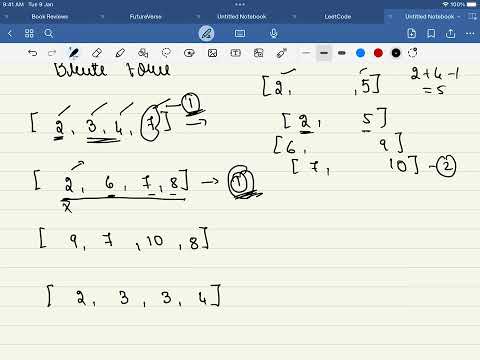 9:41 AM Tue 9 Jan
100%
Book Reviews FutureVerse Untitled Notebook LeetCode Untitled Notebook
Brute Force
[2, ,5] 2+4-1
= 5
[ 2, 3, 4, 7] → 1
[ 2, 5]
[6, 9]
[ 7, 10] - 2
[ 2, 6, 7, 8] → 1
x
[ 9, 7, 10, 8]
[ 2, 3, 3, 4]